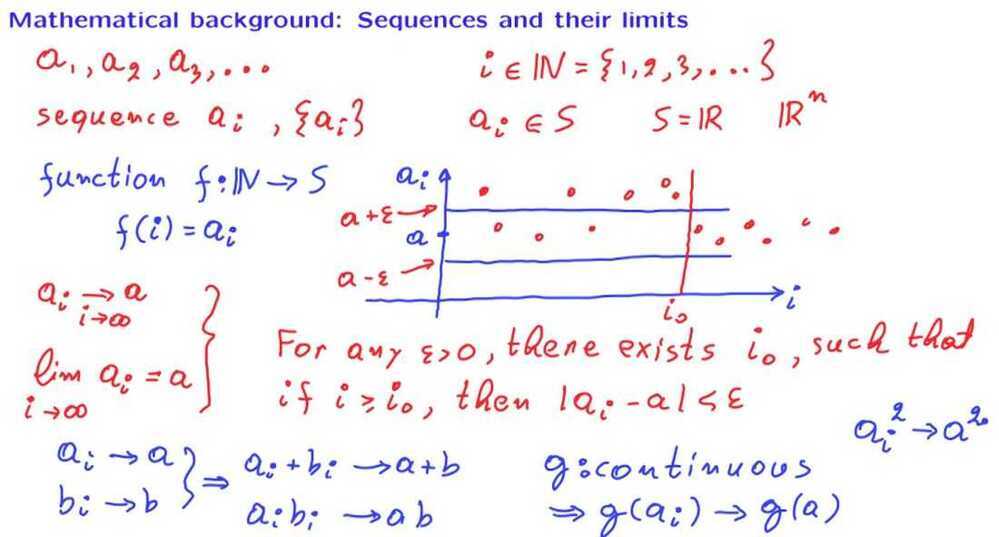 Mathematical background: Sequences and their limits
a₁, a₂, a₃, ... i ∈ ℕ = {1, 2, 3, ...}
sequence aᵢ , {aᵢ} aᵢ ∈ S S = ℝ ℝⁿ
function f : ℕ → S
f(i) = aᵢ
aᵢ
a+ε
a
a-ε
i
i₀
aᵢ → a
i→∞
lim aᵢ = a
i→∞
For any ε>0, there exists i₀, such that
if i ≥ i₀, then |aᵢ - a| < ε
aᵢ² → a²
aᵢ → a
bᵢ → b
⇒ aᵢ + bᵢ → a + b
aᵢbᵢ → ab
g : continuous
⇒ g(aᵢ) → g(a)